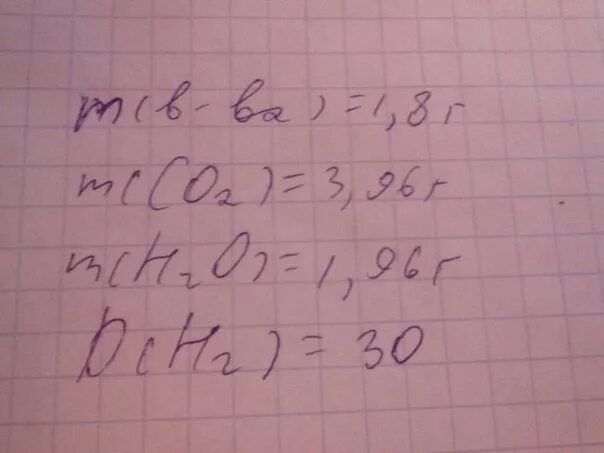 m(в-ва) = 1,8 г
m(CO₂) = 3,96 г
m(H₂O) = 1,96 г
D(H₂) = 30